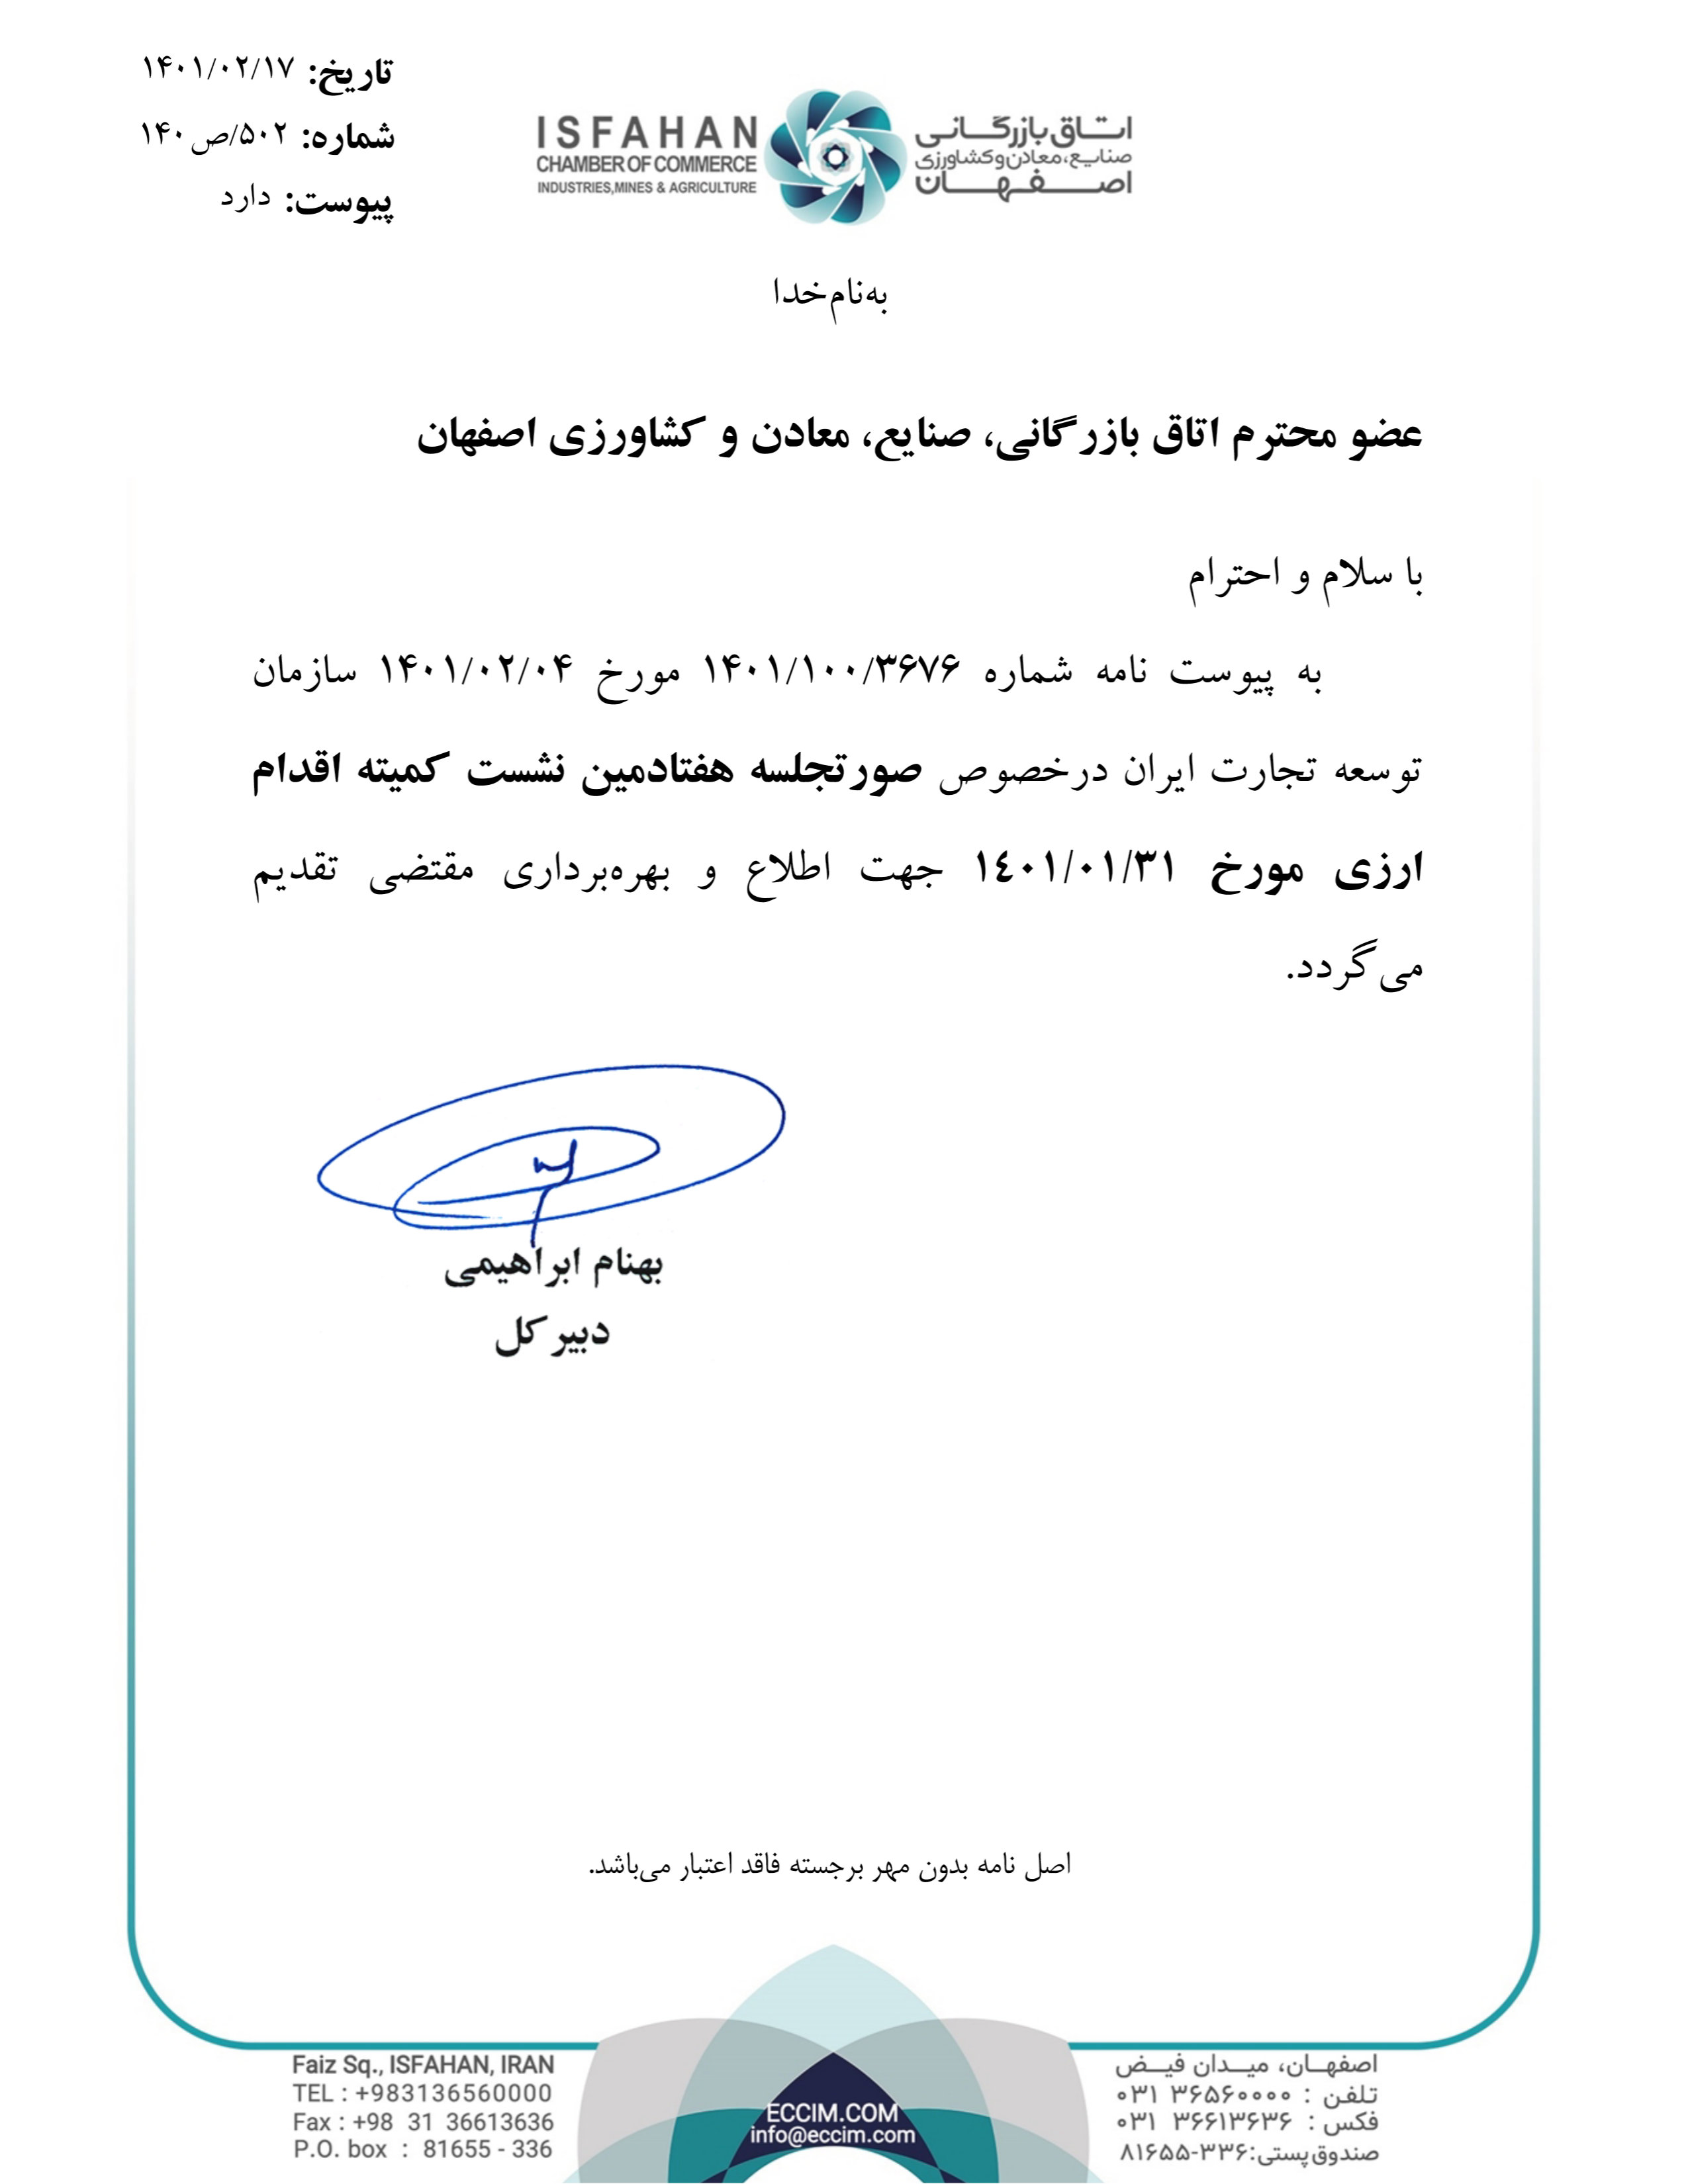 تاریخ: ۱۴۰۱/۰۲/۱۷
شماره: ۵۰۲/ص۱۴۰
پیوست: دارد
ISFAHAN
CHAMBER OF COMMERCE
INDUSTRIES,MINES & AGRICULTURE
اتاق بازرگانی
صنایع، معادن و کشاورزی
اصفهان
به‌نام‌خدا
عضو محترم اتاق بازرگانی، صنایع، معادن و کشاورزی اصفهان
با سلام و احترام
به پیوست نامه شماره ۱۴۰۱/۱۰۰/۳۶۷۶ مورخ ۱۴۰۱/۰۲/۰۴ سازمان
توسعه تجارت ایران درخصوص صورتجلسه هفتادمین نشست کمیته اقدام
ارزی مورخ ١٤٠١/٠١/٣١ جهت اطلاع و بهره‌برداری مقتضی تقدیم
می‌گردد.
بهنام ابراهیمی
دبیر کل
اصل نامه بدون مهر برجسته فاقد اعتبار می‌باشد.
Faiz Sq., ISFAHAN, IRAN
TEL : +983136560000
Fax : +98 31 36613636
P.O. box : 81655 - 336
ECCIM.COM
info@eccim.com
اصفهـان، میـدان فیـض
تلفن : ۳۶۵۶۰۰۰۰ ۰۳۱
فکس : ۳۶۶۱۳۶۳۶ ۰۳۱
صندوق پستی: ۳۳۶-۸۱۶۵۵